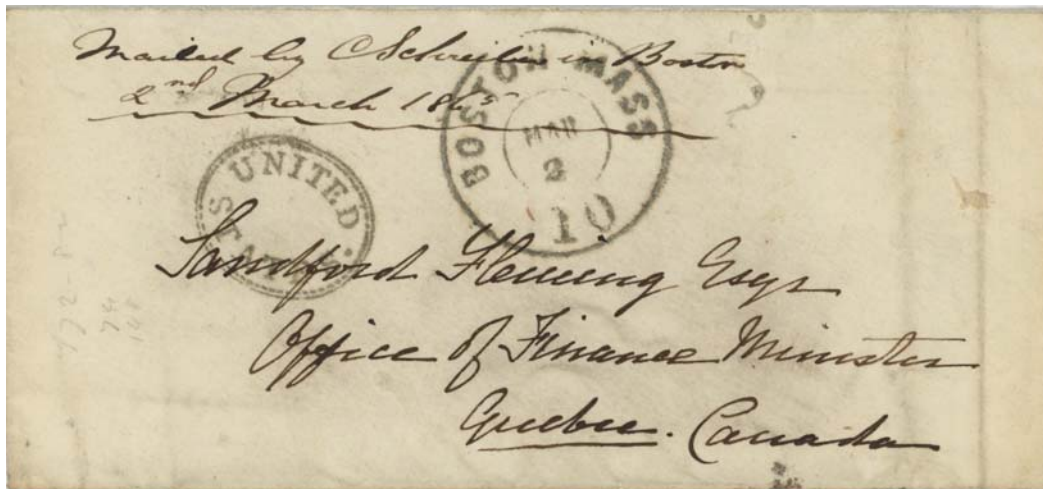 Mailed by C Schreiber in Boston
2nd March 1865
BOSTON MASS
MAR
2
10
UNITED STATES
Sandford Fleming Esqr
Office of Finance Minister
Quebec. Canada